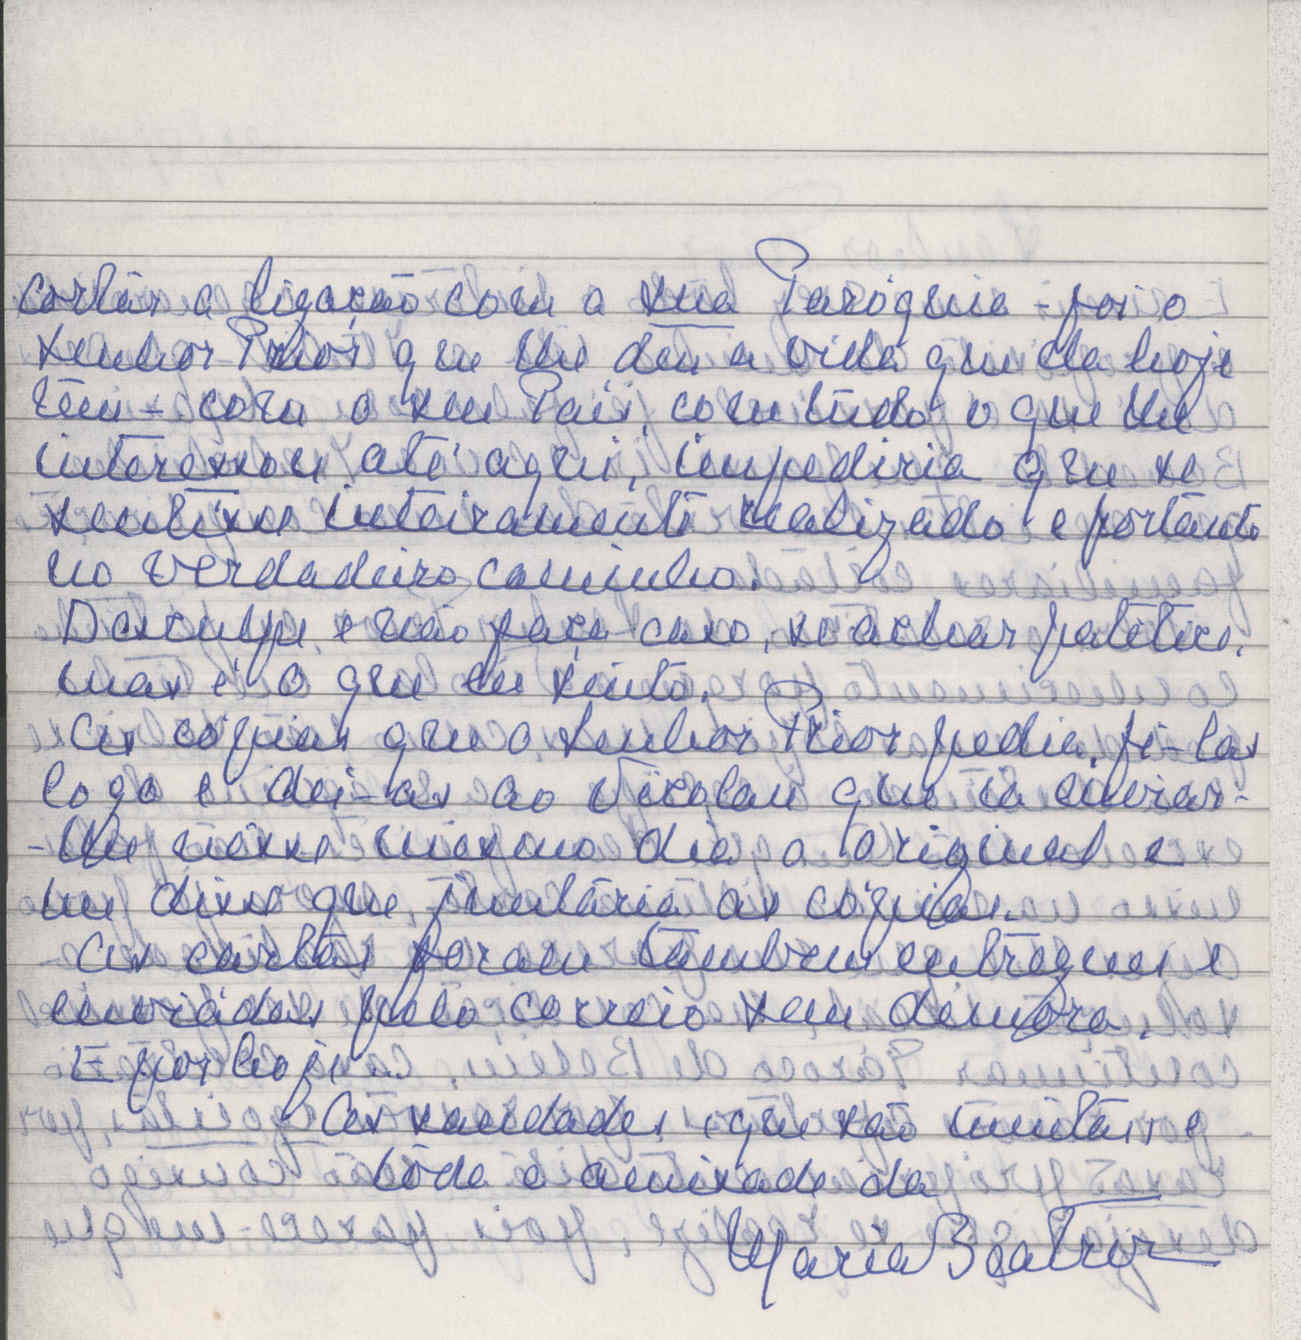 cortar a ligação com a sua Paróquia - foi o
Senhor Prior que lhe deu a vida que ela hoje
tem - com o seu País, com tudo o que lhe
interessou até aqui, impediria que se
sentisse inteiramente realizado e portanto
no verdadeiro caminho.
Desculpe e não faça caso, se achar patético,
mas é o que eu sinto.
As cópias que o Senhor Prior pedia, fi-las
logo e dei-as ao Nicolau que ia enviar-
-lhe nesse mesmo dia o original e
me disse que juntaria as cópias.
As cartas foram também entregues e
enviadas pelo correio sem demora.
E por hoje...
As saudades, que são muitas e
toda a amizade da
Maria Beatriz